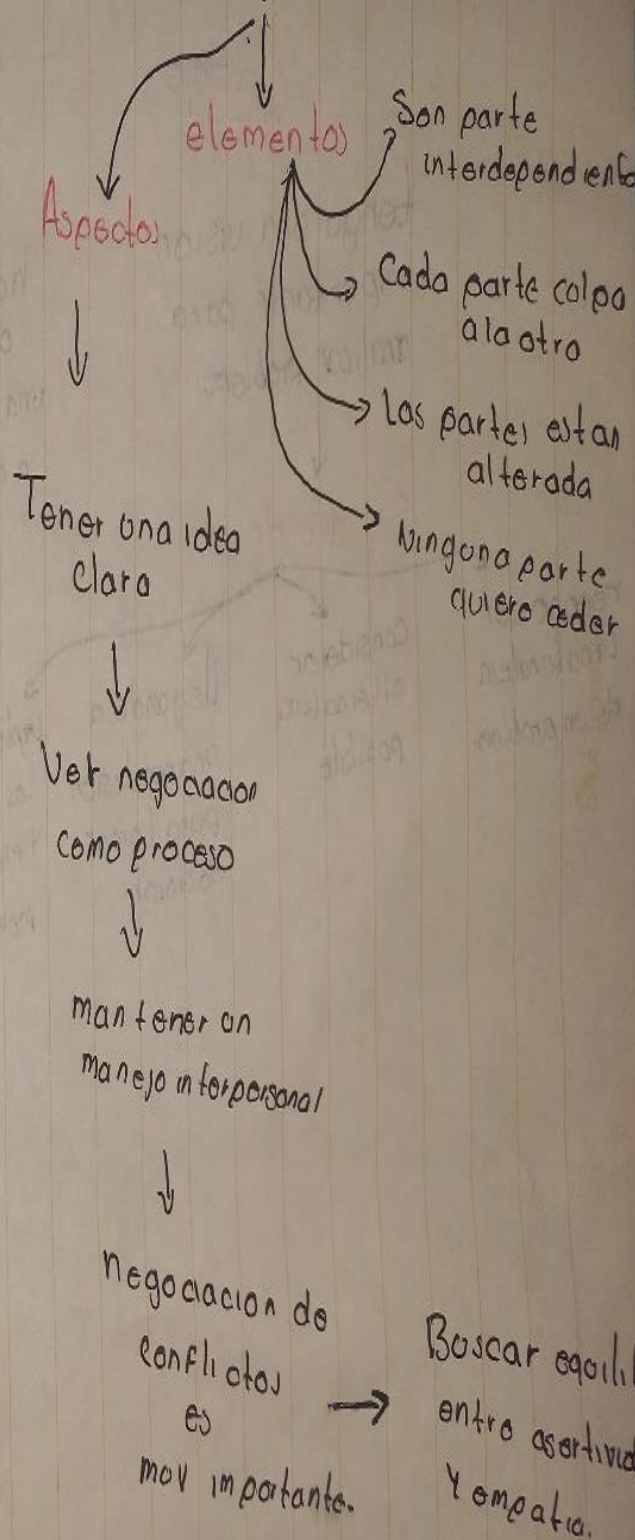 elementos
Son parte
interdependiente
Aspectos
Cada parte culpa
a la otro
Las partes estan
alterada
Ninguna parte
quiere ceder
Tener una idea
clara
Ver negociacion
como proceso
mantener un
manejo interpersonal
negociacion de
conflictos
es
muy importante.
Buscar equili
entre asertivid
Y empatia.